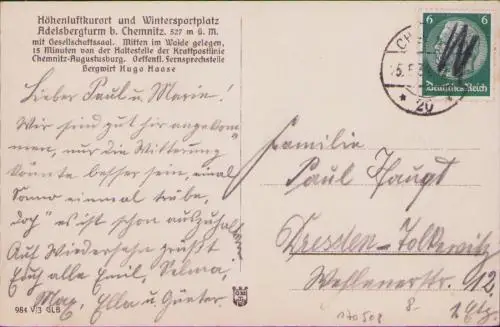 Höhenluftkurort und Wintersportplatz
Adelsbergturm b. Chemnitz. 527 m ü. M.
mit Gesellschaftssaal. Mitten im Walde gelegen,
15 Minuten von der Haltestelle der Kraftpostlinie
Chemnitz-Augustusburg. Oeffentl. Fernsprechstelle
Bergwirt Hugo Haase
Lieber Paul u. Marie!
Wir sind gut hier angekom=
men, nur die Witterung
könnte besser sein, einmal
Sonne einmal trübe,
doch es ist schon auszuhalten
Auf Wiedersehn grüßt
Euch alle Emil, Selma,
Max, Ella u. Günter.
984 V/3 GLB
6 6
Deutsches Reich
CH
5.
20
Familie
Paul
Dresden-Tolkewitz
Wehlenerstr. 12
2 Etg.
170508
8-